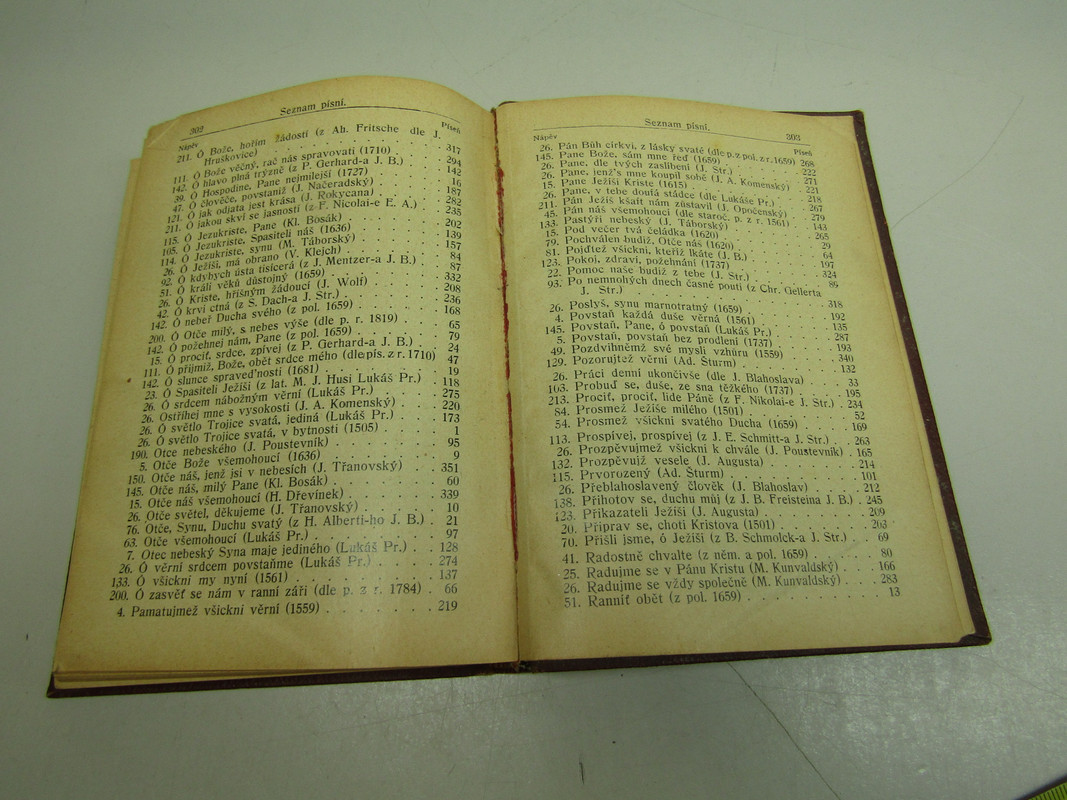 302
Seznam písní.
Nápěv
Píseň
211. Ó Bože, hořím žádostí (z Ah. Fritsche dle J.
Hruškovice) . . . . . . . . 317
111. Ó Bože věčný, rač nás spravovati (1710) . . . 294
142. Ó hlavo plná trýzně (z P. Gerhard-a J. B.) . . 142
39. Ó Hospodine, Pane nejmilejší (1727) . . . 16
47. Ó člověče, povstaniž (J. Načeradský) . . . 187
121. Ó jak odjata jest krása (J. Rokycana) . . . 282
211. Ó jakou skví se jasností (z F. Nicolai-e E. A.) . 235
115. Ó Jezukriste, Pane (Kl. Bosák) . . . 202
105. Ó Jezukriste, Spasiteli náš (1636) . . . 139
114. Ó Jezukriste, synu (M. Táborský) . . . 157
26. Ó Ježíši, má obrano (V. Klejch) . . . 84
92. Ó kdybych ústa tisícerá (z J. Mentzer-a J. B.) . 87
51. Ó králi věků důstojný (1659) . . . 332
26. Ó Kriste, hříšným žádoucí (J. Wolf) . . . 208
42. Ó krvi ctná (z S. Dach-a J. Str.) . . . 236
142. Ó nebeř Ducha svého (z pol. 1659) . . . 168
200. Ó Otče milý, s nebes výše (dle p. r. 1819) . . 65
142. Ó požehnej nám, Pane (z pol. 1659) . . . 79
15. Ó prociť, srdce, zpívej (z P. Gerhard-a J. B.) . 24
111. Ó přijmiž, Bože, obět srdce mého (dle pís. z r. 1710) 47
142. Ó slunce spraved'nosti (1681) . . . 19
23. Ó Spasiteli Ježíši (z lat. M. J. Husi Lukáš Pr.) . 118
26. Ó srdcem nábožným věrní (Lukáš Pr.) . . . 275
26. Ostříhej mne s vysokosti (J. A. Komenský) . . 220
26. Ó světlo Trojice svatá, jediná (Lukáš Pr.) . . 173
26. Ó světlo Trojice svatá, v bytnosti (1505) . . . 1
190. Otce nebeského (J. Poustevník) . . . 95
5. Otče Bože všemohoucí (1636) . . . 9
150. Otče náš, jenž jsi v nebesích (J. Třanovský) . . 351
145. Otče náš, milý Pane (Kl. Bosák) . . . 60
15. Otče náš všemohoucí (H. Dřevínek) . . . 339
26. Otče světel, děkujeme (J. Třanovský) . . . 10
76. Otče, Synu, Duchu svatý (z H. Alberti-ho J. B.) . 21
63. Otče všemohoucí (Lukáš Pr.) . . . 97
7. Otec nebeský Syna maje jediného (Lukáš Pr.) . . 128
26. Ó věrní srdcem povstaňme (Lukáš Pr.) . . . 274
133. Ó všickni my nyní (1561) . . . 137
200. Ó zasvěť se nám v ranní záři (dle p. z r. 1784) . 66
4. Pamatujmež všickni věrní (1559) . . . 219
Seznam písní.
303
Nápěv
Píseň
26. Pán Bůh církvi, z lásky svaté (dle p. z pol. z r. 1659) 268
145. Pane Bože, sám mne řeď (1659) . . . 222
26. Pane, dle tvých zaslíbení (J. Str.) . . . 271
26. Pane, jenž's mne koupil sobě (J. A. Komenský) . 221
15. Pane Ježíši Kriste (1615) . . . 218
26. Pane, v tebe doufá stádce (dle Lukáše Pr.) . . 267
211. Pán Ježíš kšaft nám zůstavil (J. Opočenský) . . 279
45. Pán náš všemohoucí (dle staroč. p. z r. 1561) . 143
133. Pastýři nebeský (J. Táborský) . . . 265
15. Pod večer tvá čeládka (1620) . . . 29
79. Pochválen budiž, Otče náš (1620) . . . 64
81. Pojďtež všickni, kteříž lkáte (J. B.) . . . 197
123. Pokoj, zdraví, požehnání (1737) . . . 324
22. Pomoc naše budiž z tebe (J. Str.) . . . 89
93. Po nemnohých dnech časné pouti (z Chr. Gellerta
J. Str.) . . . . . . . . 318
26. Poslyš, synu marnotratný (1659) . . . 192
4. Povstaň každá duše věrná (1561) . . . 135
145. Povstaň, Pane, ó povstaň (Lukáš Pr.) . . . 287
5. Povstaň, povstaň bez prodlení (1737) . . . 193
49. Pozdvihněmž své mysli vzhůru (1559) . . . 340
129. Pozorujtež věrní (Ad. Šturm) . . . 132
26. Práci denní ukončivše (dle J. Blahoslava) . . 33
103. Probuď se, duše, ze sna těžkého (1737) . . . 195
213. Prociť, prociť, lide Páně (z F. Nikolai-e J. Str.) . 234
84. Prosmež Ježíše milého (1501) . . . 52
54. Prosmež všickni svatého Ducha (1659) . . . 169
113. Prospívej, prospívej (z J. E. Schmitt-a J. Str.) . 263
26. Prozpěvujmež všickni k chvále (J. Poustevník) . 165
132. Prozpěvujž vesele (J. Augusta) . . . 214
115. Prvorozený (Ad. Šturm) . . . 101
26. Přeblahoslavený člověk (J. Blahoslav) . . . 212
138. Přihotov se, duchu můj (z J. B. Freisteina J. B.) . 245
123. Přikazateli Ježíši (J. Augusta) . . . 209
20. Připrav se, choti Kristova (1501) . . . 203
70. Přišli jsme, ó Ježíši (z B. Schmolck-a J. Str.) . 69
41. Radostně chvalte (z něm. a pol. 1659) . . . 80
25. Radujme se v Pánu Kristu (M. Kunvaldský) . . 166
26. Radujme se vždy společně (M. Kunvaldský) . . 283
51. Ranniť obět (z pol. 1659) . . . 13